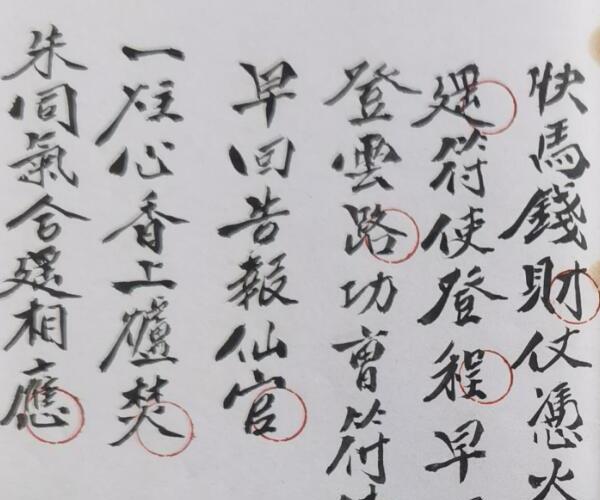 快馬錢財仗憑火
還符使登程早
登雲路功曹符使
早回告報仙官
一炷心香上爐焚
朱同氣合還相應